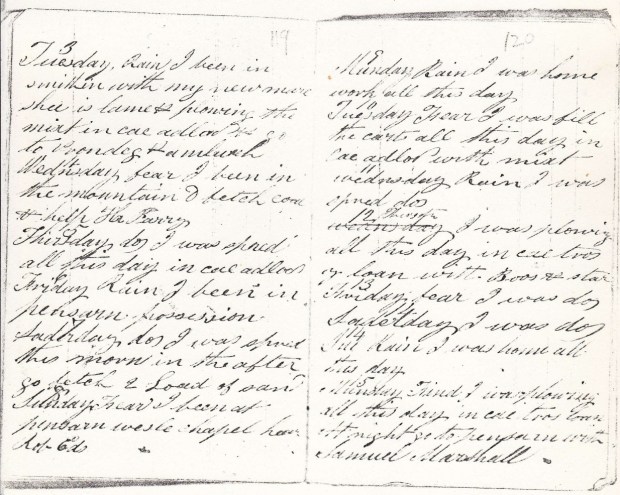 119
3
Tuesday Rain I been in
smithin with my new mare
shee is lame & plowing the
mixt in cae adlodd & go
to
Wednsday fear I been in
the mountain & fetch
& help Ha Parry
Thirsday do I was spred
all this day in cae adlodd
Friday Rain I been in
pensarn possesion
Saturday do I was spred
this morn in the after
go fetch 2 Load of sand
Sunday Fear I been at
pensarn wesle chapel hear
Rob Eds
120
9
Munday Rain I was home
work all this day
10
Tuesday Fear I was fill
the carts all this day in
cae adlodd with mixt
11
wednsday Rain I was
spred do
12
I was plowing
all this day in cae tros
loan with
13
Friday fear I was do
Saterday I was do
Rain I was home all
this day
Munday I was plowing
all this day in cae tros loan
at night go to pensarn with
Samuel Marshall